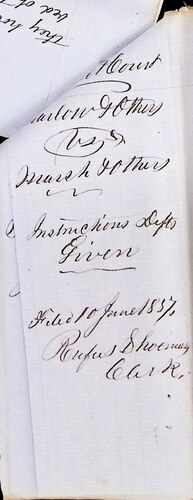 they
Court
& Others
vs
Marsh & others
Instructions Defts
Given
Filed 10 June 1857
Rufus
Clerk